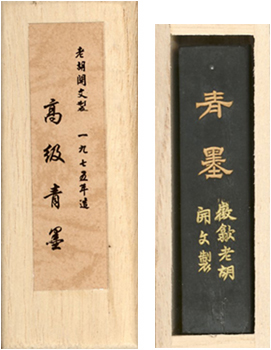 老胡開文製 一九七五年造
高級青墨
青墨
徽歙老胡
開文製